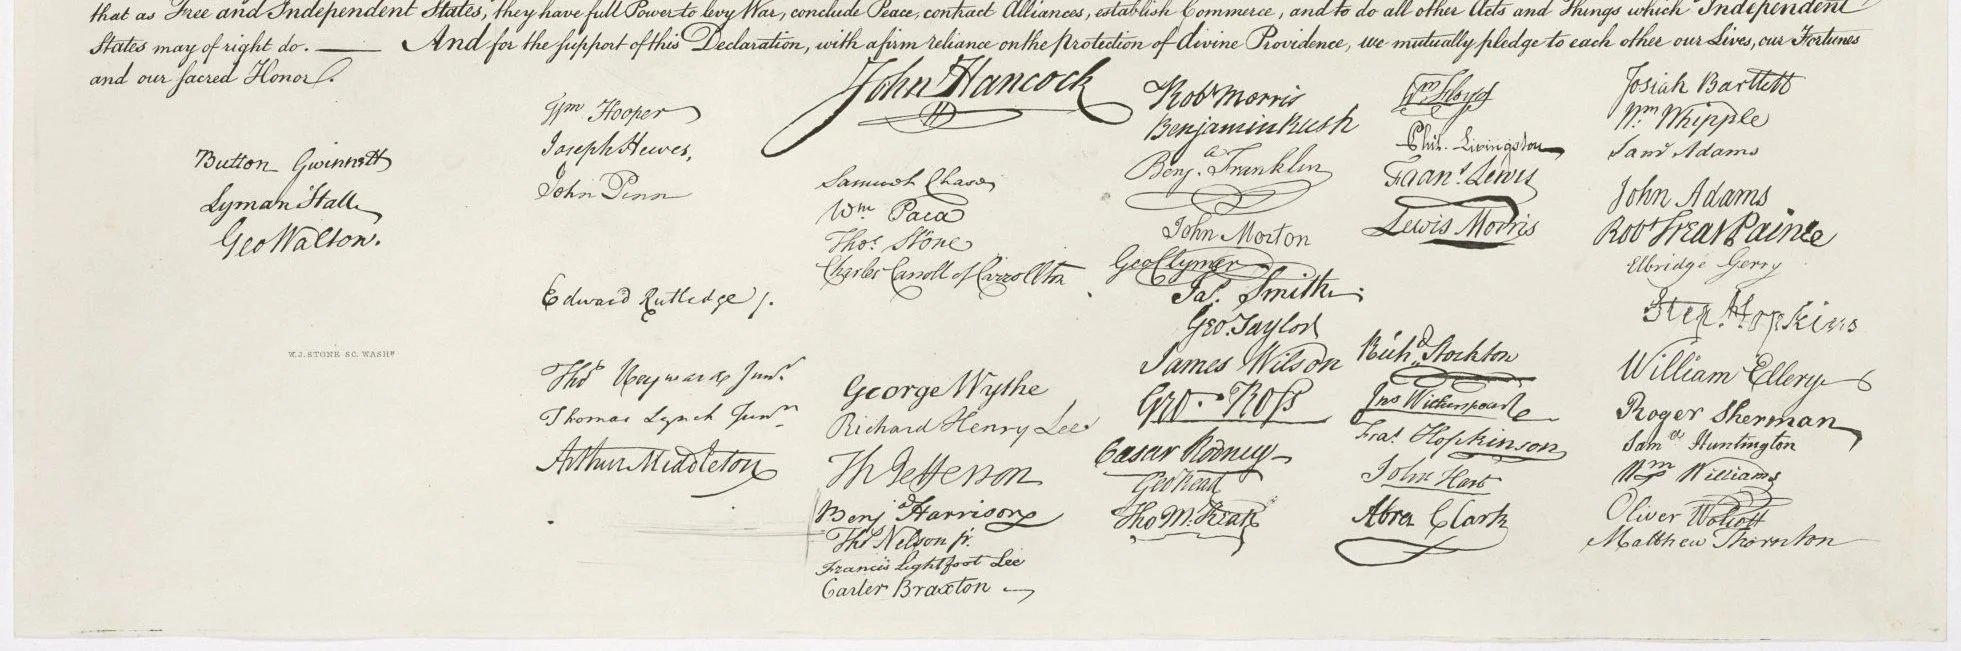 that as Free and Independent States, they have full Power to levy War, conclude Peace, contract Alliances, establish Commerce, and to do all other Acts and Things which Independent
States may of right do. — And for the support of this Declaration, with a firm reliance on the protection of divine Providence, we mutually pledge to each other our Lives, our Fortunes
and our sacred Honor.
Button Gwinnett
Lyman Hall
Geo Walton.
W. J. STONE SC. WASHN
Wm Hooper
Joseph Hewes,
John Penn
Edward Rutledge /.
Thos Heyward Junr.
Thomas Lynch Junr.
Arthur Middleton
John Hancock
Samuel Chase
Wm. Paca
Thos. Stone
Charles Carroll of Carrollton
George Wythe
Richard Henry Lee
Th Jefferson
Benj Harrison
Thos Nelson jr.
Francis Lightfoot Lee
Carter Braxton
Robt Morris
Benjamin Rush
Benja. Franklin
John Morton
Geo Clymer
Jas. Smith
Geo. Taylor
James Wilson
Geo. Ross
Caesar Rodney
Geo Read
Tho M:Kean
Wm Floyd
Phil. Livingston
Frans. Lewis
Lewis Morris
Richd. Stockton
Jno Witherspoon
Fras. Hopkinson
John Hart
Abra Clark
Josiah Bartlett
Wm. Whipple
Saml Adams
John Adams
Robt Treat Paine
Elbridge Gerry
Step. Hopkins
William Ellery
Roger Sherman
Samel Huntington
Wm Williams
Oliver Wolcott
Matthew Thornton